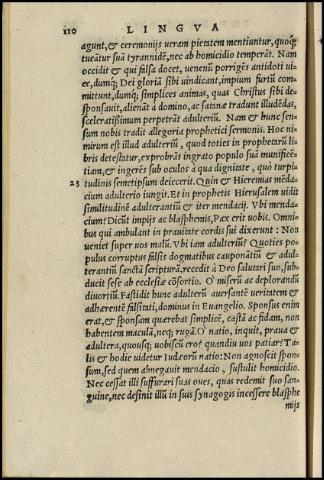 110 LINGVA
agunt, & ceremonijs ueram pietatem mentiuntur, quoq́;
tueātur suā tyrannidē, nec ab homicidio temperāt. Nam
occidit & qui falsa docet, uenenū porrigēs antidoti ui-
ce, dumq́; Dei gloriā sibi uindicant, impium furtū com-
mittunt, dumq́; simplices animas, quas Christus sibi de-
sponsauit, alienāt à domino, ac satanæ tradunt illudēdas,
sceleratissimum perpetrāt adulteriū. Nam & hunc sen-
sum nobis tradit allegoria prophetici sermonis. Hoc ni-
mirum est illud adulteriū, quod toties in prophetarū li-
bris detestatur, exprobrās ingrato populo suā munificē-
tiam, & ingerēs sub oculos à qua dignitate, quò turpi-
23 tudinis semetipsum deiecerit. Quin & Hieremias mēda-
cium adulterio iungit. Et in prophetis Hierusalem uidit
similitudinē adulterantiū & iter mendacij. Vbi menda-
cium? Dicūt impijs ac blasphemis, Pax erit uobis. Omni-
bus qui ambulant in prauitate cordis sui dixerunt: Non
ueniet super uos malū. Vbi iam adulteriū? Quoties po-
pulus corruptus falsis dogmatibus cauponātiū & adul-
terantiū sanctā scripturā, recedit à Deo salutari suo, sub-
ducit sese ab ecclesiæ cōsortio. O' miserū ac deplorandū
diuortiū. Fastidit hunc adulterū auersantē ueritatem &
adhærentē falsitati, dominus in Euangelio. Sponsus enim
erat, & sponsam quærebat simplicē, castā ac fidam, non
habentem maculā, neq́; rugā. O' natio, inquit, praua &
adultera, quousq́; uobiscū ero? quandiu uos patiar? Ta-
lis & hodie uidetur Iudæorū natio: Non agnoscit spon-
sum, sed quem abnegauit mendacio, sustulit homicidio.
Nec cessat illi suffurari suas oues, quas redemit suo san-
guine, nec definit illū in suis synagogis incessere blasphe
mijs